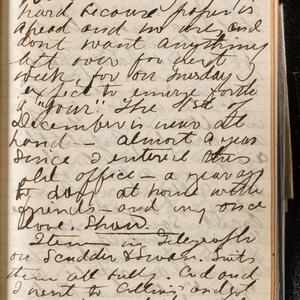 hard because paper is
ahead and Mr are and
dont want anything
left over for next
week, for on Tuesday
expect to emerge forth
a "four". The 1st of
December is near at
hand — almost a year
since I entered this
old office — a year ago
to day at home with
friends — and my once
love.
Item in Telegraph
on Scudder & Swan. Suits
them all bully. Cad and
I went to Collins, and got